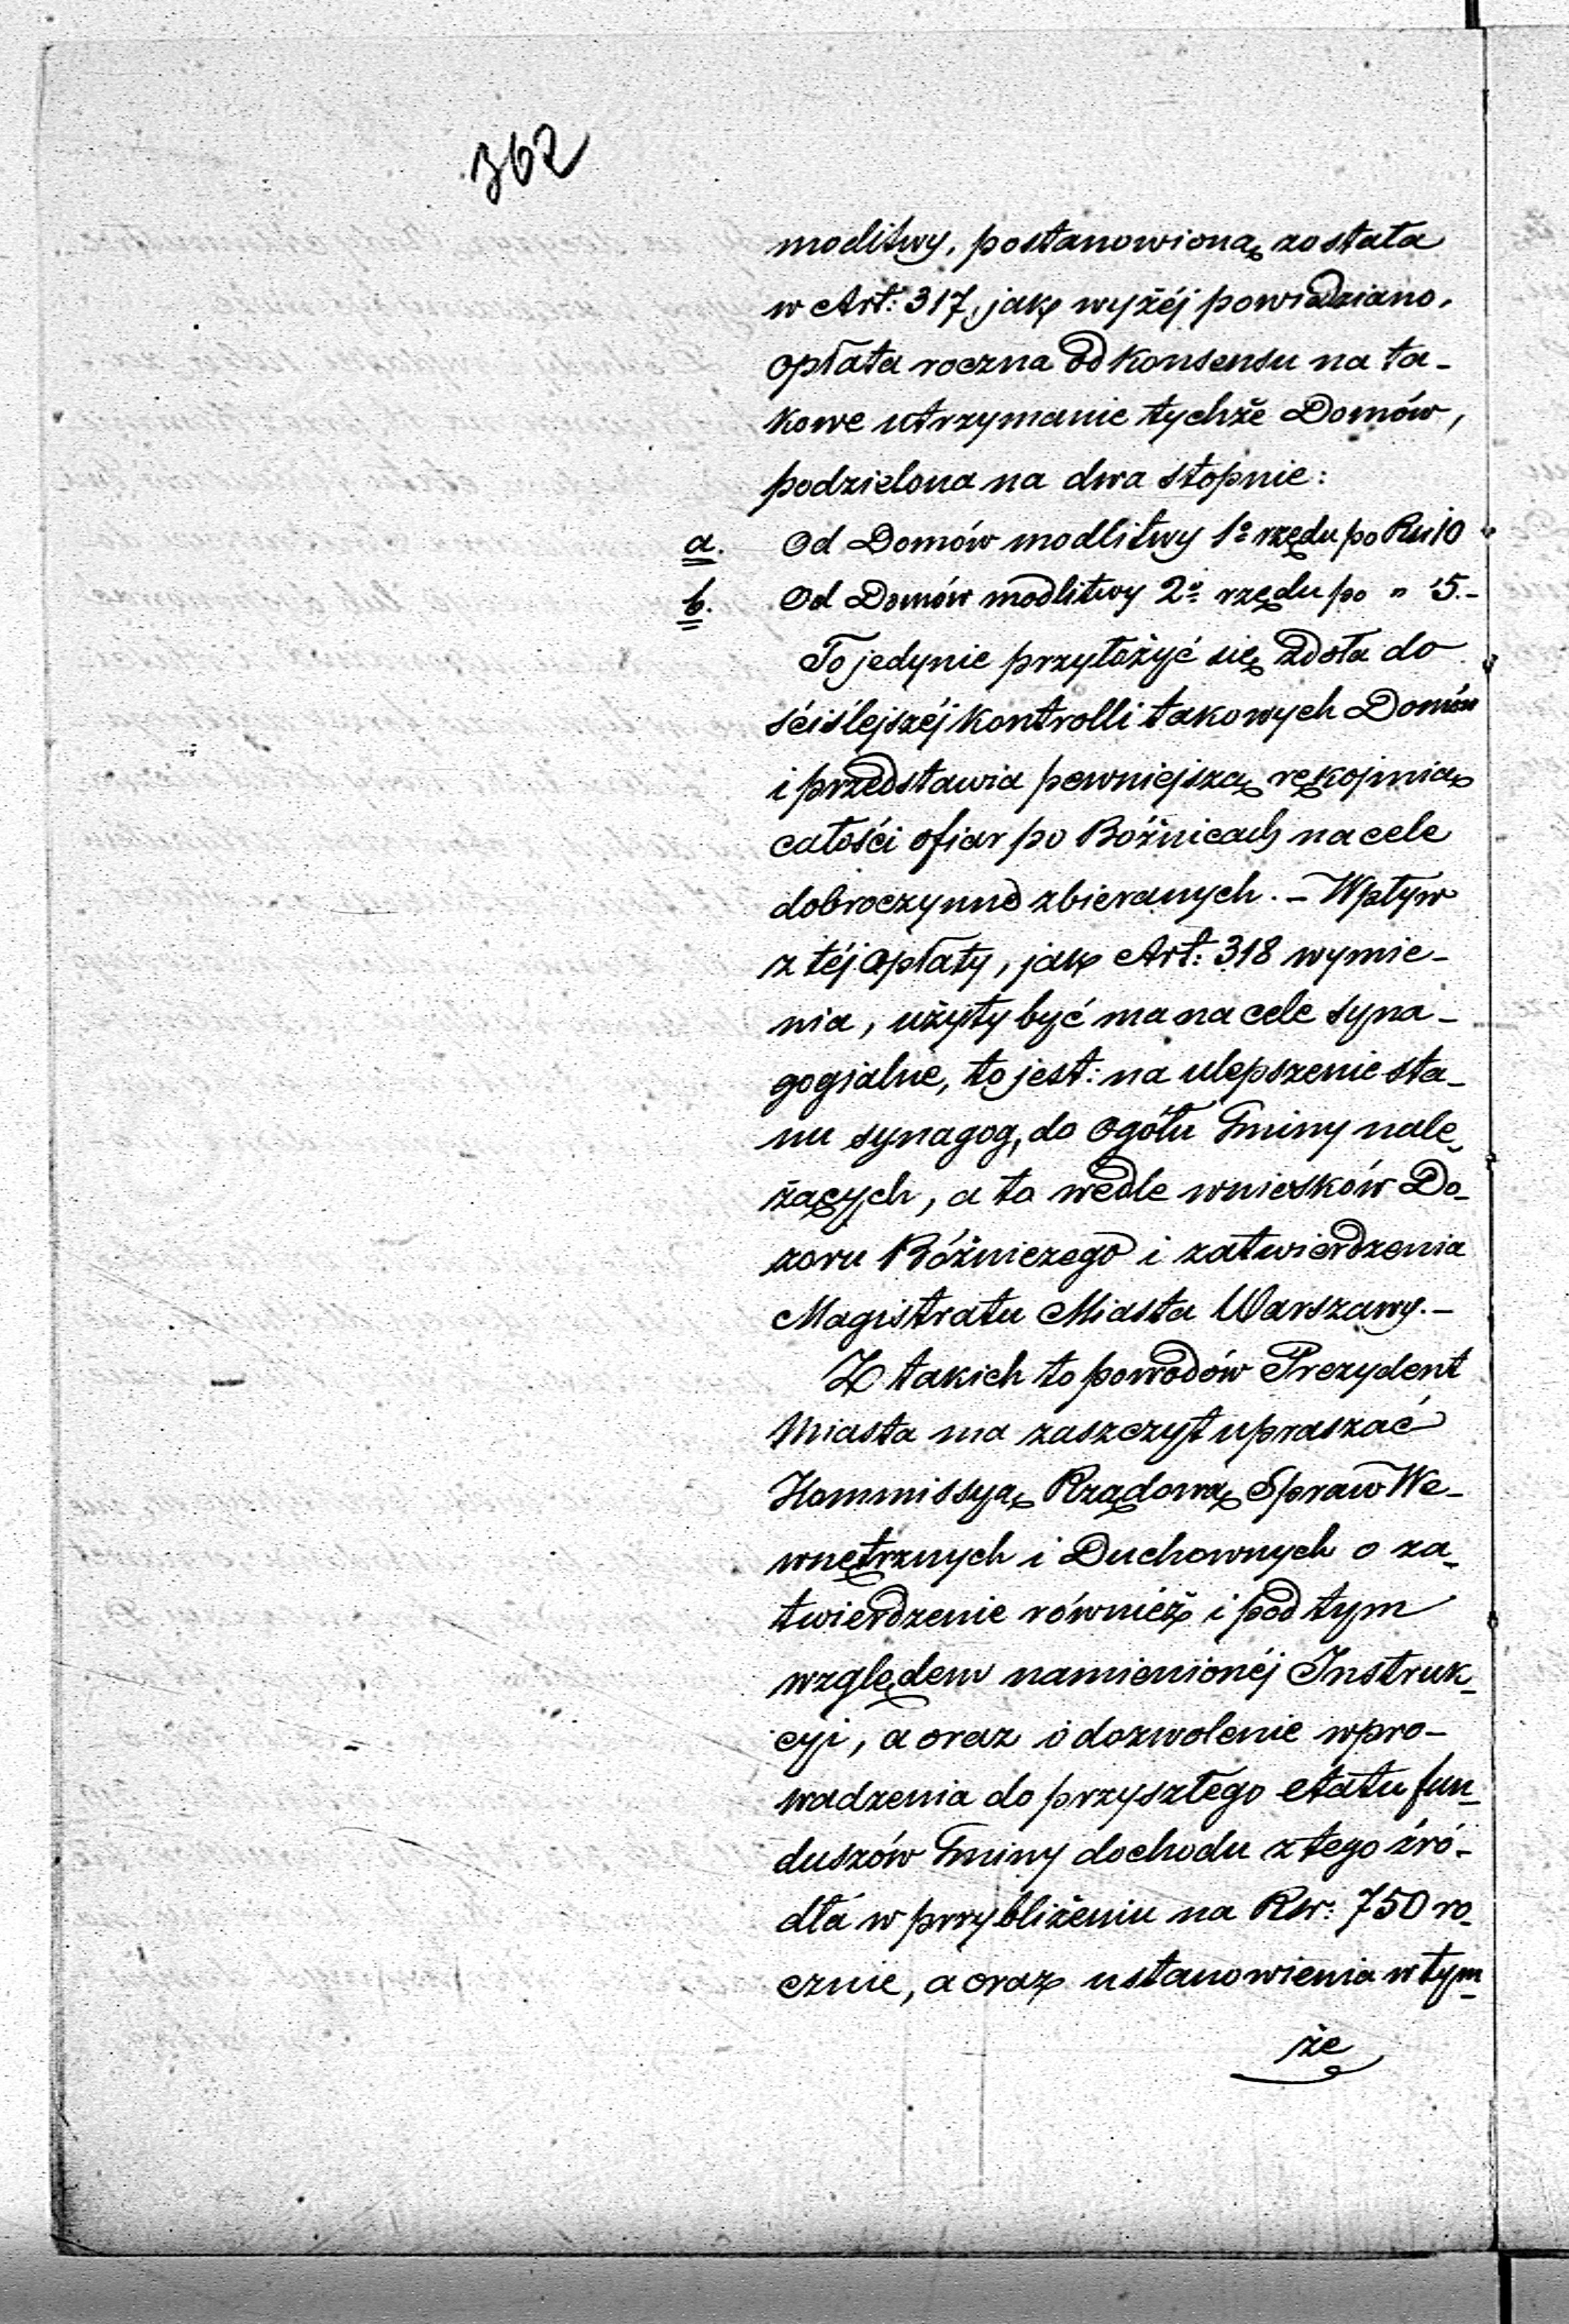 362
modlitwy, postanowioną została
w Art: 317, jak wyżéj powiedziano,
opłata roczna od konsensu na ta-
kowe utrzymanie tychże Domów,
podzielona na dwa stopnie:
a. Od Domów modlitwy 1o rzędu po Rs 10
b. Od Domów modlitwy 2o rzędu po „ 5.-
To jedynie przyłożyć się zdoła do
ściślejszéj kontrolli takowych Domów
i przedstawia pewniejszą rękojmią
całości ofiar po Bóżnicach na cele
dobroczynne zbieranych. - Wpływ
z téj opłaty, jak Art: 318 wymie-
nia, użyty być ma na cele syna-
gogialne, to jest: na ulepszenie sta-
nu synagog, do ogółu Gminy nale-
żących, a to wedle wniosków Do-
zoru Bóżniczego i zatwierdzenia
Magistratu Miasta Warszawy. -
Z takich to powodów Prezydent
Miasta ma zaszczyt upraszać
Kommissyą Rządową Spraw We-
wnętrznych i Duchownych o za-
twierdzenie również i pod tym
względem namienionéj Instruk-
cyi, a oraz o dozwolenie wpro-
wadzenia do przyszłego etatu fun-
duszów Gminy dochodu z tego źró-
dła w przybliżeniu na Rsr: 750 ro-
cznie, a oraz ustanowienia w tym-
że